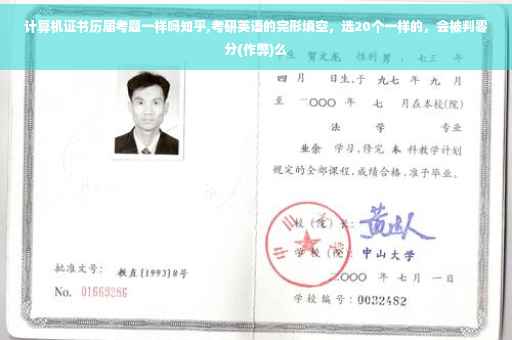 计算机证书历届考题一样吗知乎,考研英语的完形填空，选20个一样的，会被判零
分(作弊)么
生 贺文龙 性别 男 , 七三 年
四 月 日生,于 九七 年 九 月
至 二〇〇〇 年 七 月在本校(院)
法 学 专业
业余 学习,修完 本 科教学计划
规定的全部课程,成绩合格,准予毕业。
校（院）长:
学 校（院）: 中山大学
二〇〇〇 年 七 月 一 日
批准文号: 教直(1993)8号
No. 01669286
学校编号: 0032482